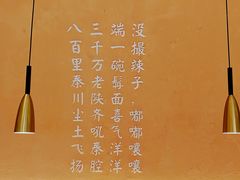 八百里秦川尘土飞扬
三千万老陕齐吼秦腔
端一碗髯面喜气洋洋
没撮辣子,嘟嘟嚷嚷